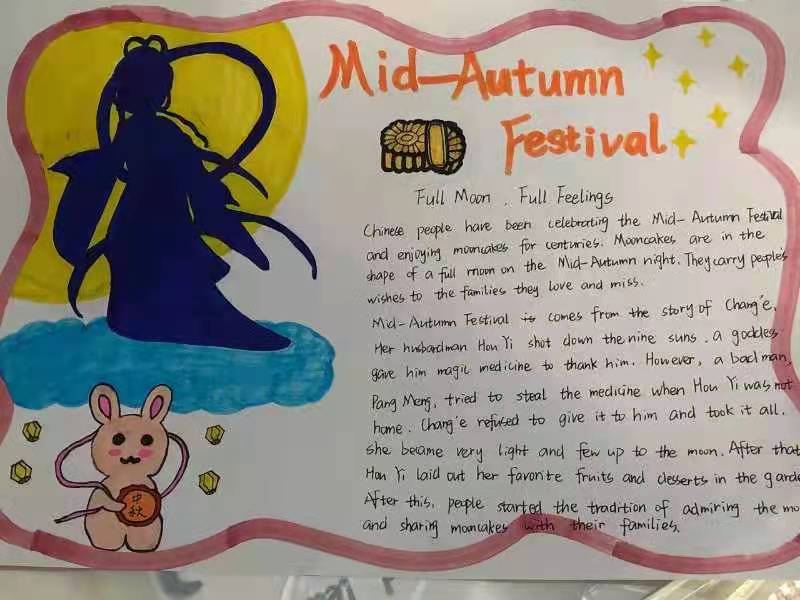 Mid-Autumn
Festival
Full Moon, Full Feelings
Chinese people have been celebrating the Mid-Autumn Festival
and enjoying mooncakes for centuries. Mooncakes are in the
shape of a full moon on the Mid-Autumn night. They carry people's
wishes to the families they love and miss.
Mid-Autumn Festival is comes from the story of Chang'e.
Her husbandman Hou Yi shot down the nine suns. a goddess
gave him magic medicine to thank him. However, a bad man,
Pang Meng, tried to steal the medicine when Hou Yi was not
home. Chang'e refused to give it to him and took it all.
she became very light and few up to the moon. After that
Hou Yi laid out her favorite fruits and desserts in the garde
After this, people started the tradition of admiring the mo
and sharing mooncakes with their families.
中
秋